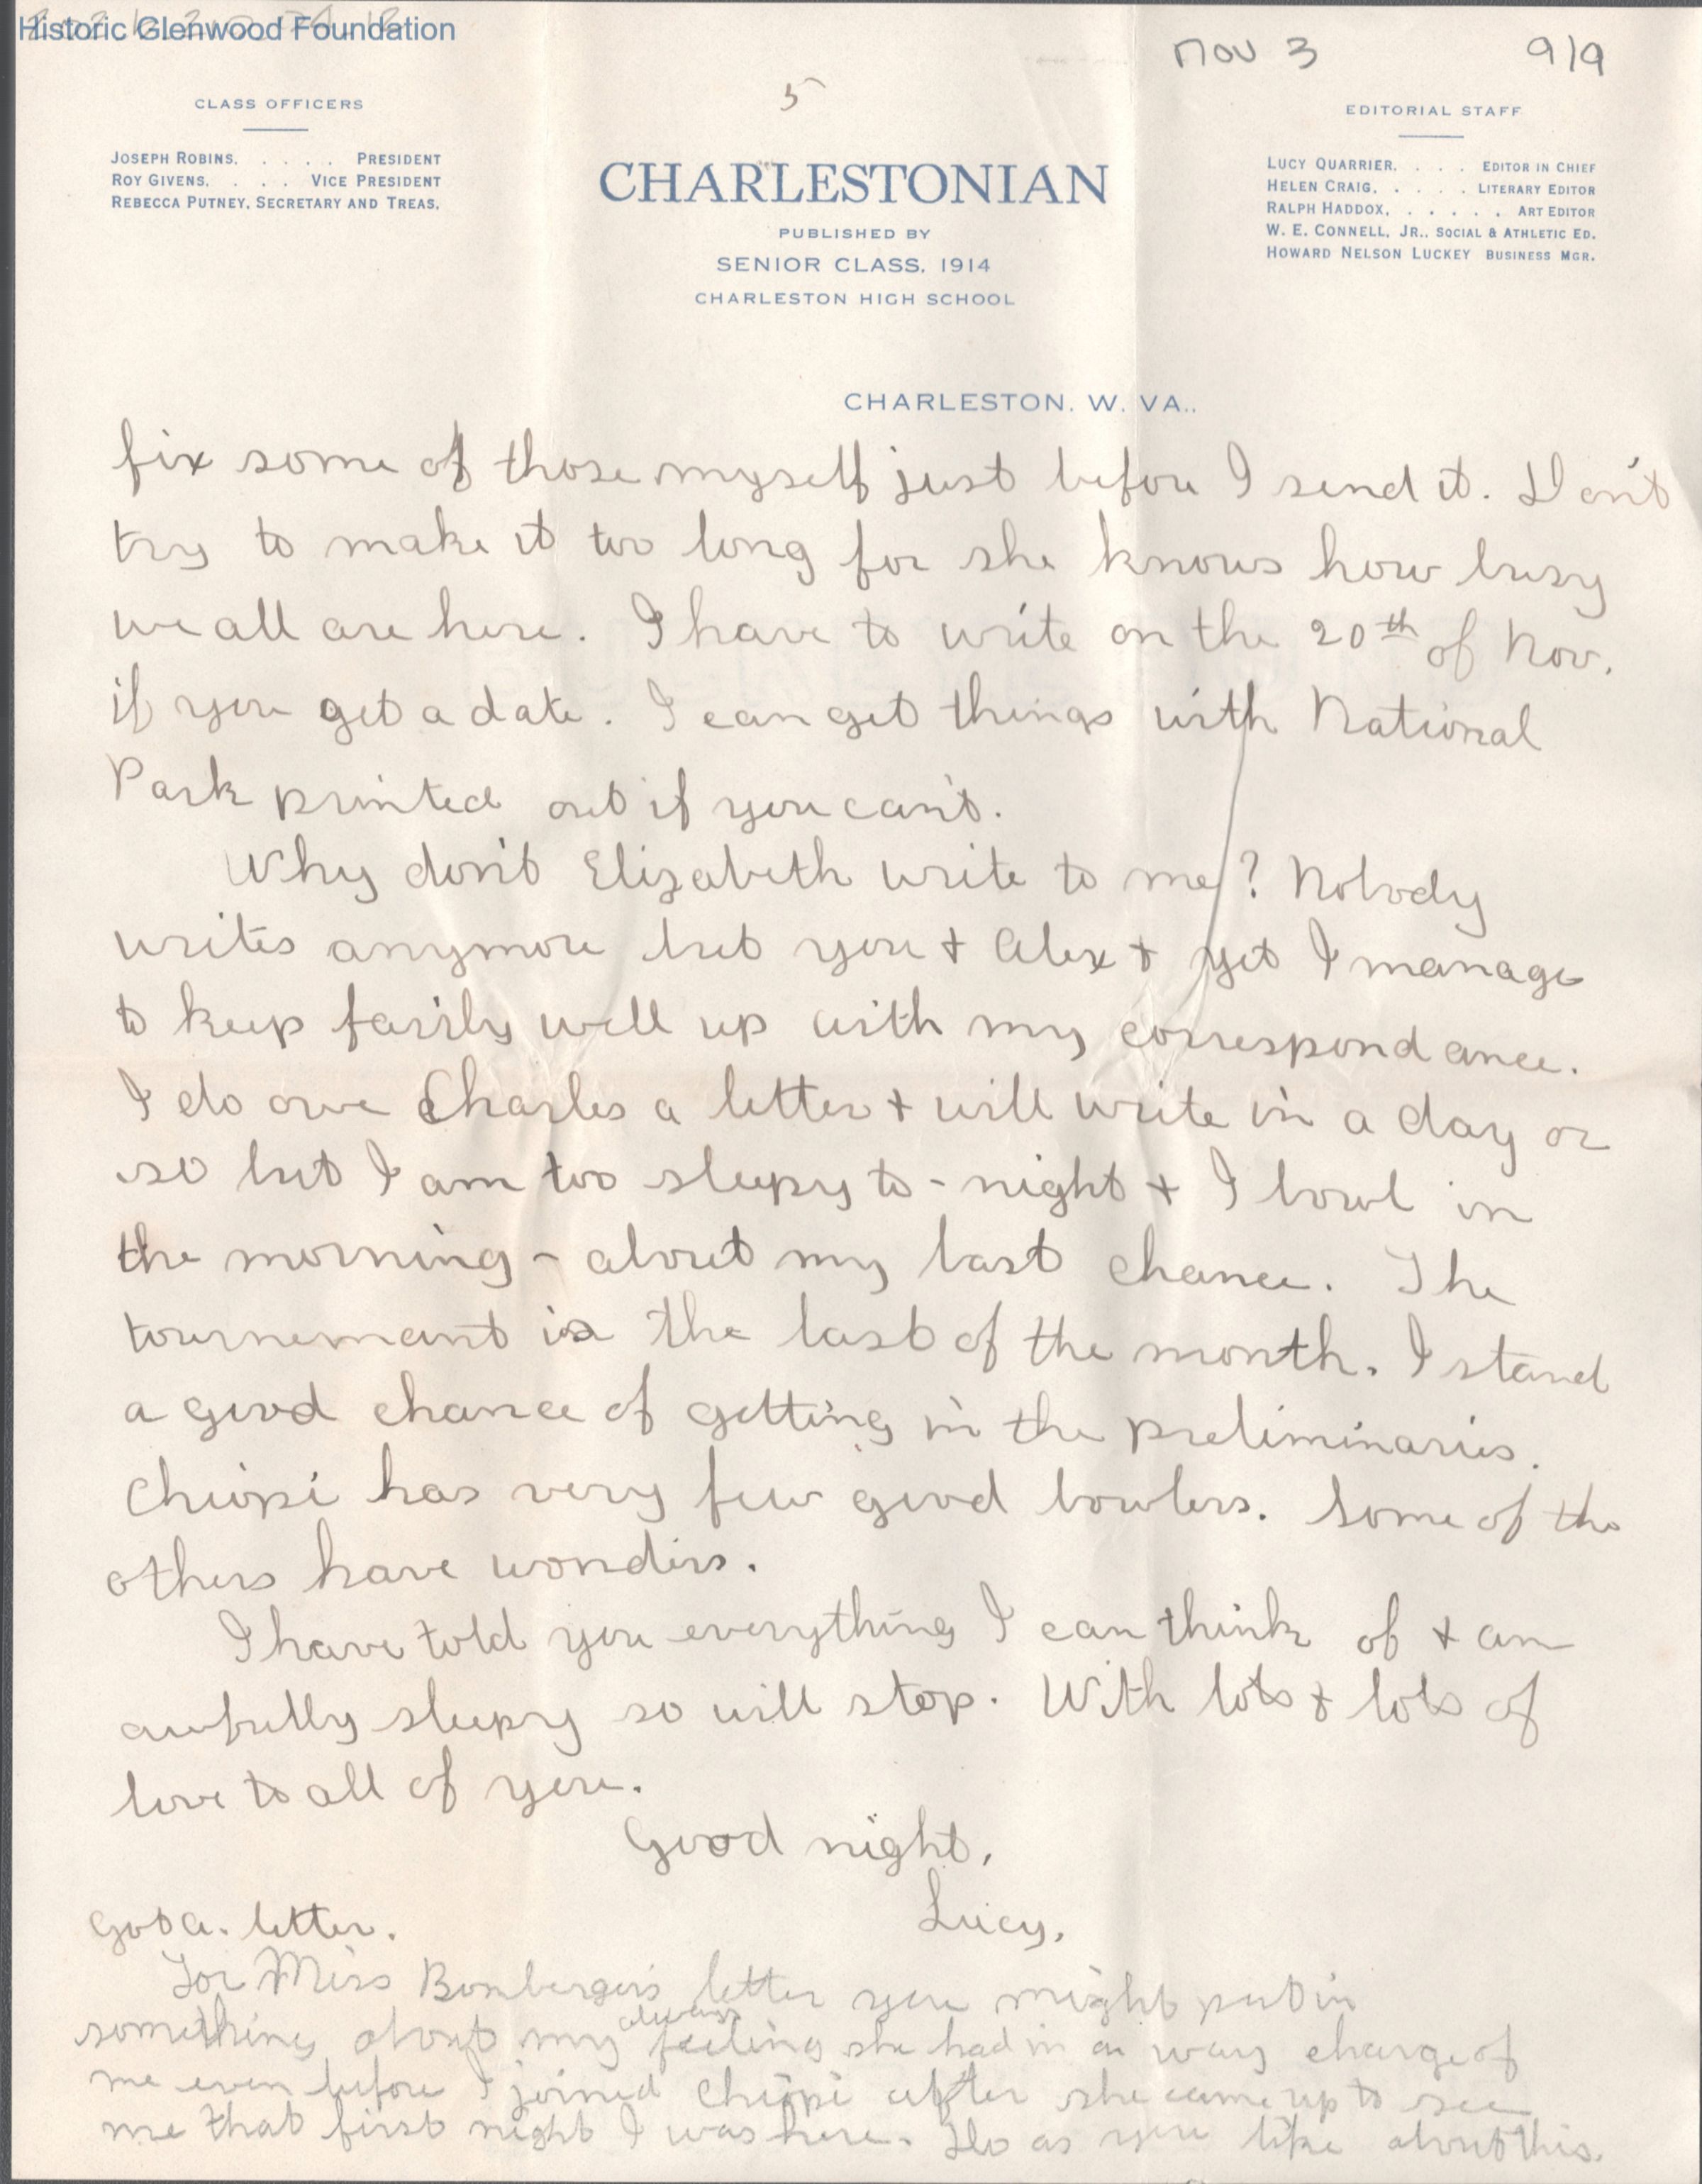 Historic Glenwood Foundation
Nov 3 9/9
5
CLASS OFFICERS
JOSEPH ROBINS. . . . . PRESIDENT
ROY GIVENS. . . . VICE PRESIDENT
REBECCA PUTNEY, SECRETARY AND TREAS.
CHARLESTONIAN
PUBLISHED BY
SENIOR CLASS, 1914
CHARLESTON HIGH SCHOOL
EDITORIAL STAFF
LUCY QUARRIER. . . . EDITOR IN CHIEF
HELEN CRAIG. . . . . LITERARY EDITOR
RALPH HADDOX. . . . . . ART EDITOR
W. E. CONNELL, JR., SOCIAL & ATHLETIC ED.
HOWARD NELSON LUCKEY BUSINESS MGR.
CHARLESTON. W. VA..
fix some of those myself just before I send it. Don't
try to make it too long for she knows how busy
we all are here. I have to write on the 20th of Nov.
if you get a date. I can get things with National
Park printed out if you can't.
Why don't Elizabeth write to me? Nobody
writes anymore but you + Alex + yet I manage
to keep fairly well up with my correspondance.
I do owe Charles a letter + will write in a day or
so but I am too sleepy to-night + I bowl in
the morning - about my last chance. The
tournemant is the last of the month. I stand
a good chance of getting in the preliminaries.
Chiopi has very few good bowlers. Some of the
others have wonders.
I have told you everything I can think of + am
awfully sleepy so will stop. With lots + lots of
love to all of you.
Good night,
Lucy.
Got a. letter.
For Miss Bomberger's letter you might put in
something about my always feeling she had in a way charge of
me even before I joined Chiopi after she came up to see
me that first night I was here. Do as you like about this.